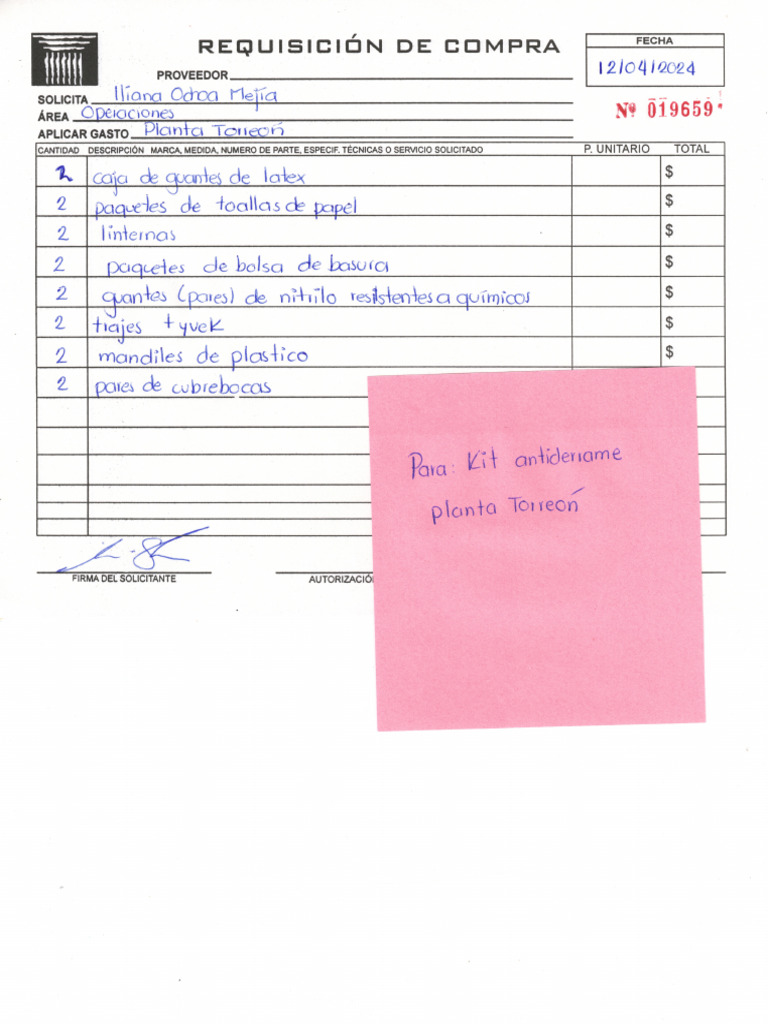 REQUISICIÓN DE COMPRA
FECHA
12/04/2024
PROVEEDOR
Nº 019659
SOLICITA Iliana Ochoa Mejía
ÁREA Operaciones
APLICAR GASTO Planta Torreón
CANTIDAD DESCRIPCIÓN MARCA, MEDIDA, NUMERO DE PARTE, ESPECIF. TÉCNICAS O SERVICIO SOLICITADO P. UNITARIO TOTAL
2 caja de guantes de latex $
2 paquetes de toallas de papel $
2 linternas $
2 paquetes de bolsa de basura $
2 guantes (pares) de nitrilo resistentes a químicos $
2 trajes tyvek $
2 mandiles de plastico $
2 pares de cubrebocas
Para: Kit antiderrame
planta Torreón
FIRMA DEL SOLICITANTE
AUTORIZACIÓ